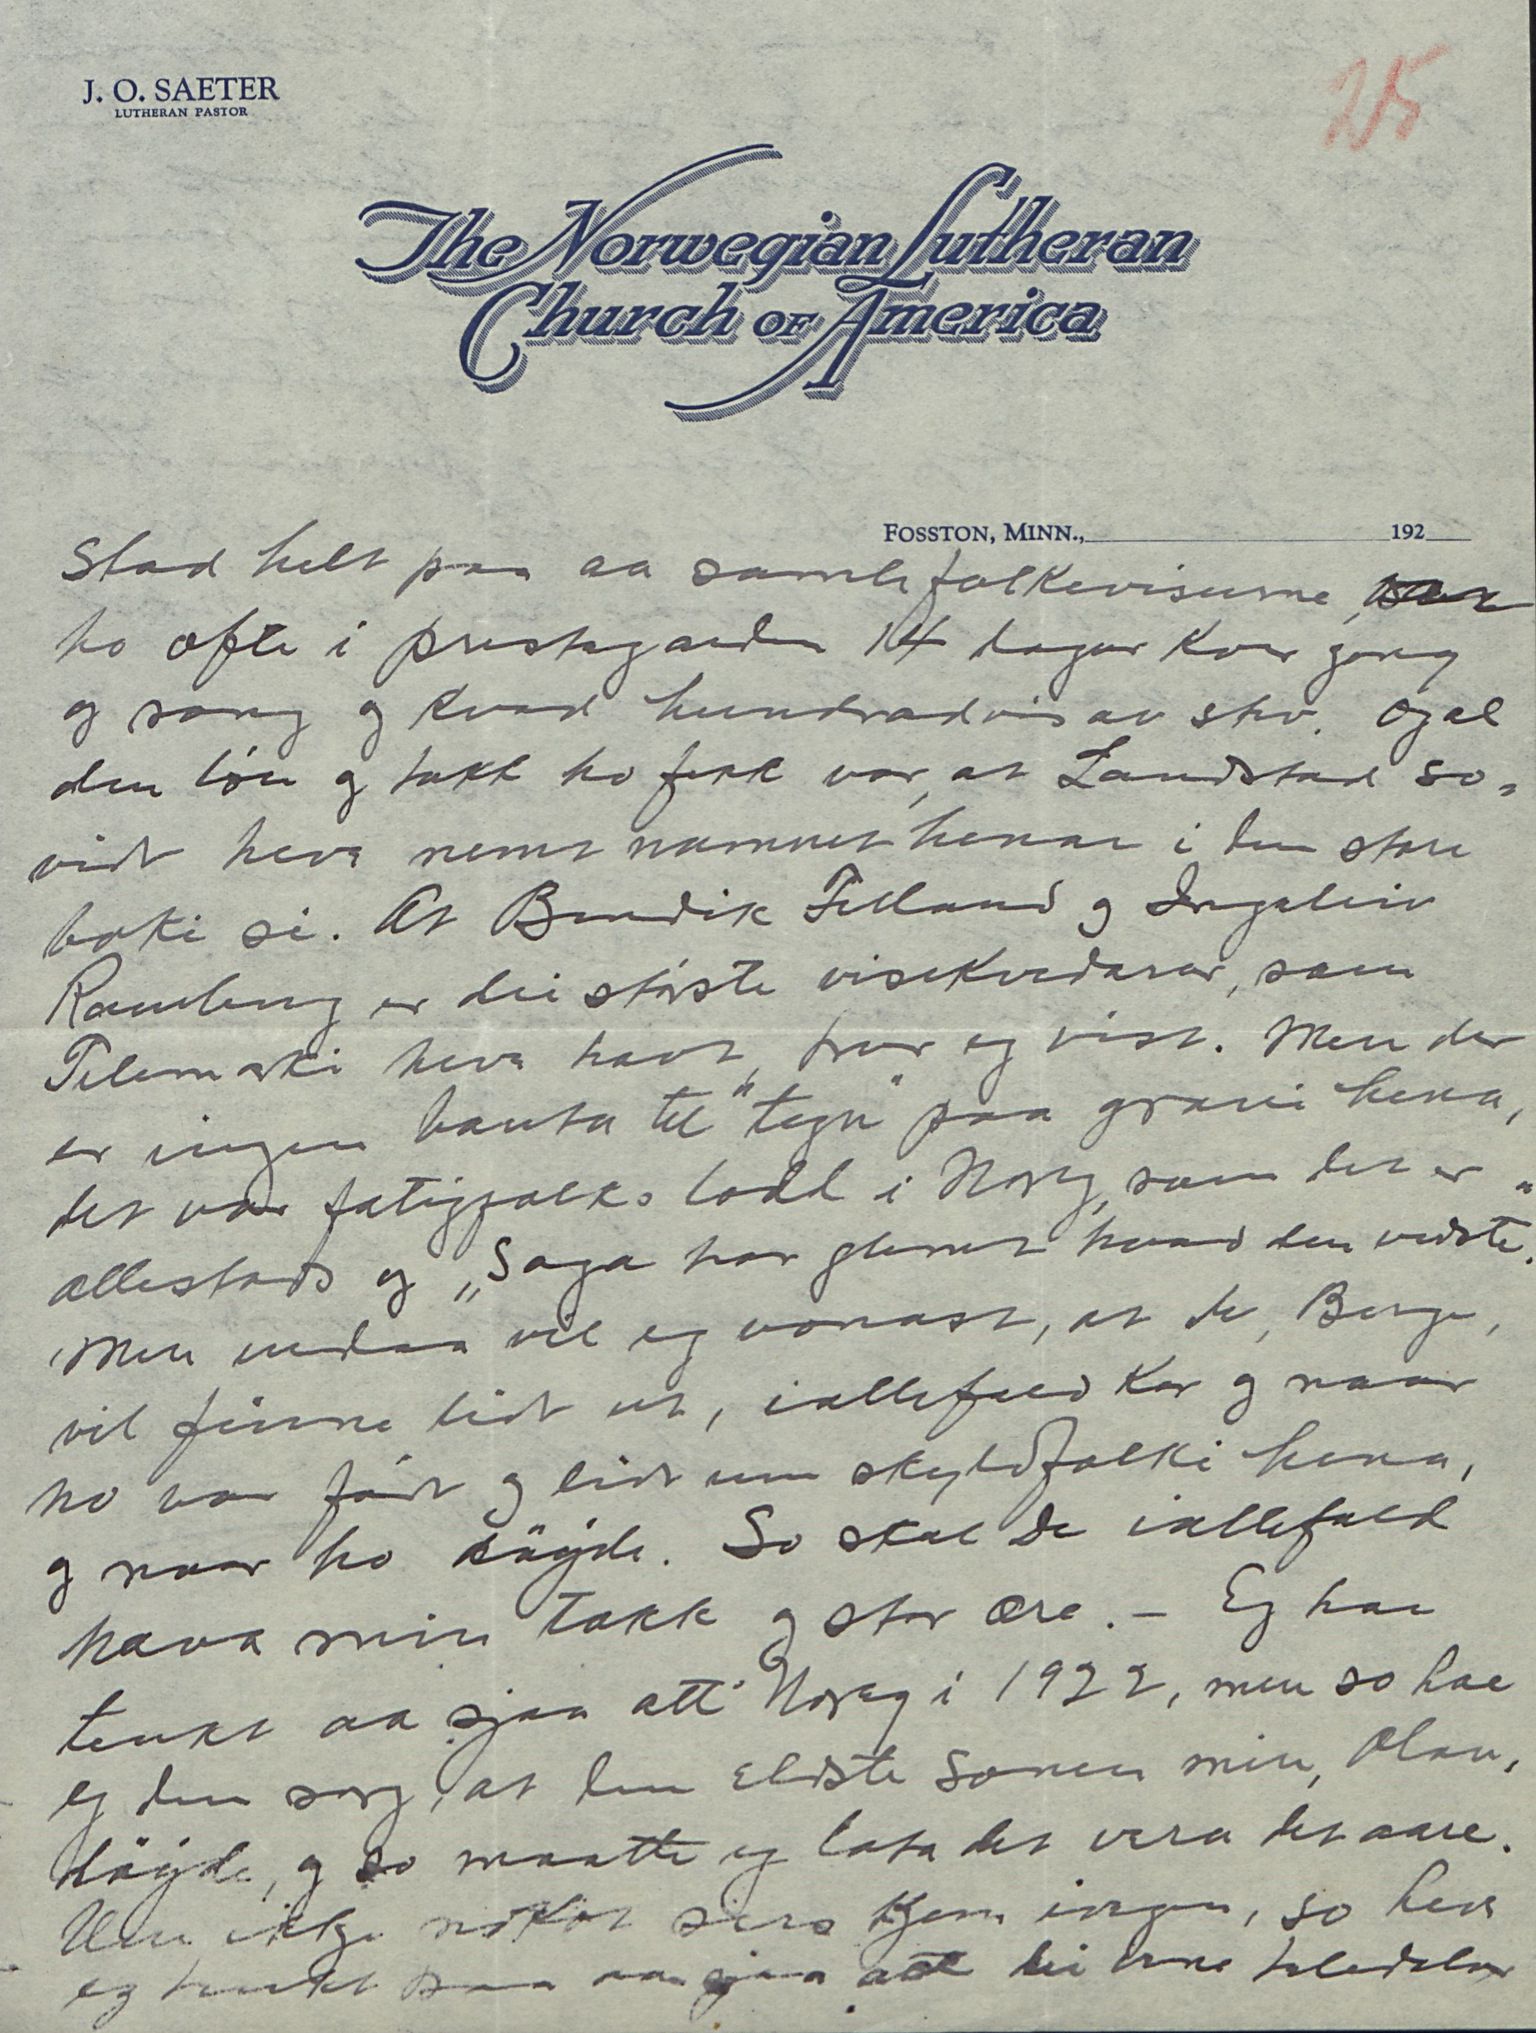 J. O. SAETER
LUTHERAN PASTOR
25
The Norwegian Lutheran
Church OF America
FOSSTON, MINN., 192
stad helt paa aa samle folkevisurne,
ho ofte i prestegarden 14 dagar kver gong
og song og kvad hundradvis av stev. Og al
den løn og takk ho fekk var, at Landstad so-
vidt heva nemt namnet hennar i den store
boki si. At Bendik Felland og Ingeleiv
Ramberg er dei største visekvedarar, som
Telemarki heva havt, trur eg vist. Men der
er ingen bauta til "tegn" paa gravi hena,
det var fatigfolks lodd i Noreg, som det er
allestads og "Saga har glemt hvad den vidste".
Men endaa vil eg vonast, at de, Berge,
vil finne lidt ut, iallefald kor og naar
ho var født og lidt um skyldfolki hena,
og naar ho døyde. So skal De iallefald
hava min takk og stor ære. — Eg hae
tenkt aa sjaa att Noreg i 1922, men so hae
eg den sorg, at den eldste sonen min, Olav,
døyde, og so maatte eg lata det vera det aare.
Um ikkje nokot sers kjem ivegen, so heva
eg tenkt paa aa sjaa att dei teledalar